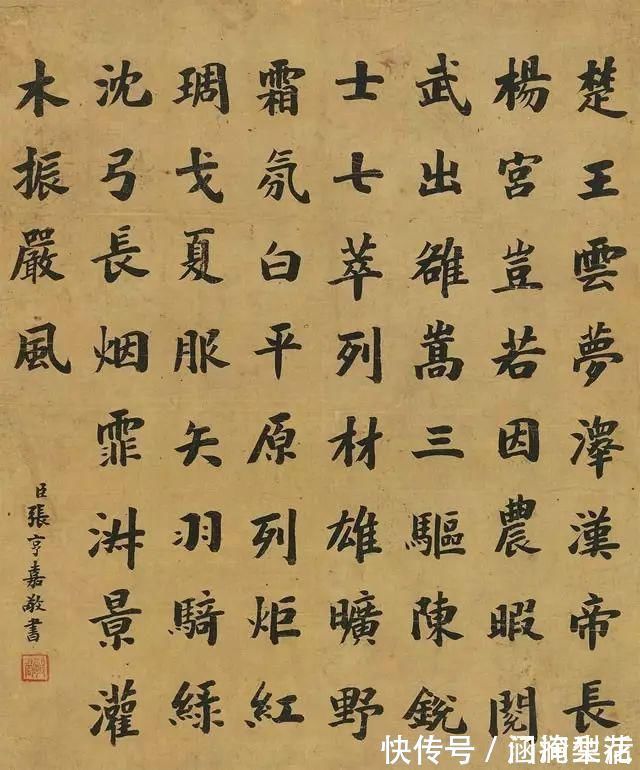 楚王雲夢澤漢帝長
楊宮豈若因農暇閱
武出雒嵩三驅陳銳
士七萃列材雄曠野
霜氛白平原列炬紅
琱戈夏服矢羽騎綠
沈弓長烟霏景灌
木振嚴風
臣張亨嘉敬書
快传号 /